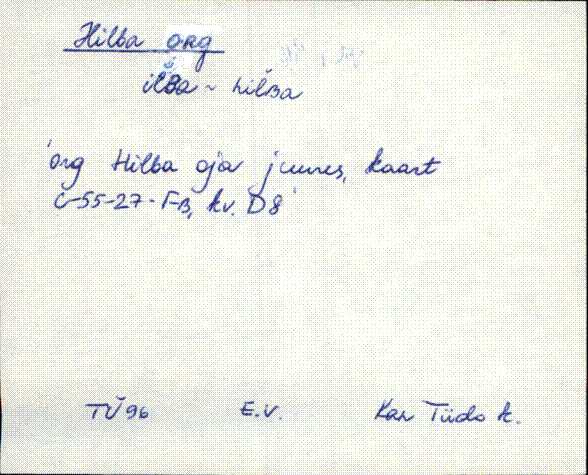 Hilba org
ilʙa ~ hilʙa
'org Hilba oja juures, kaart
C-55-27-Γ-B, kv. D8'
TÜ96 E.V. Kar Tiido k.